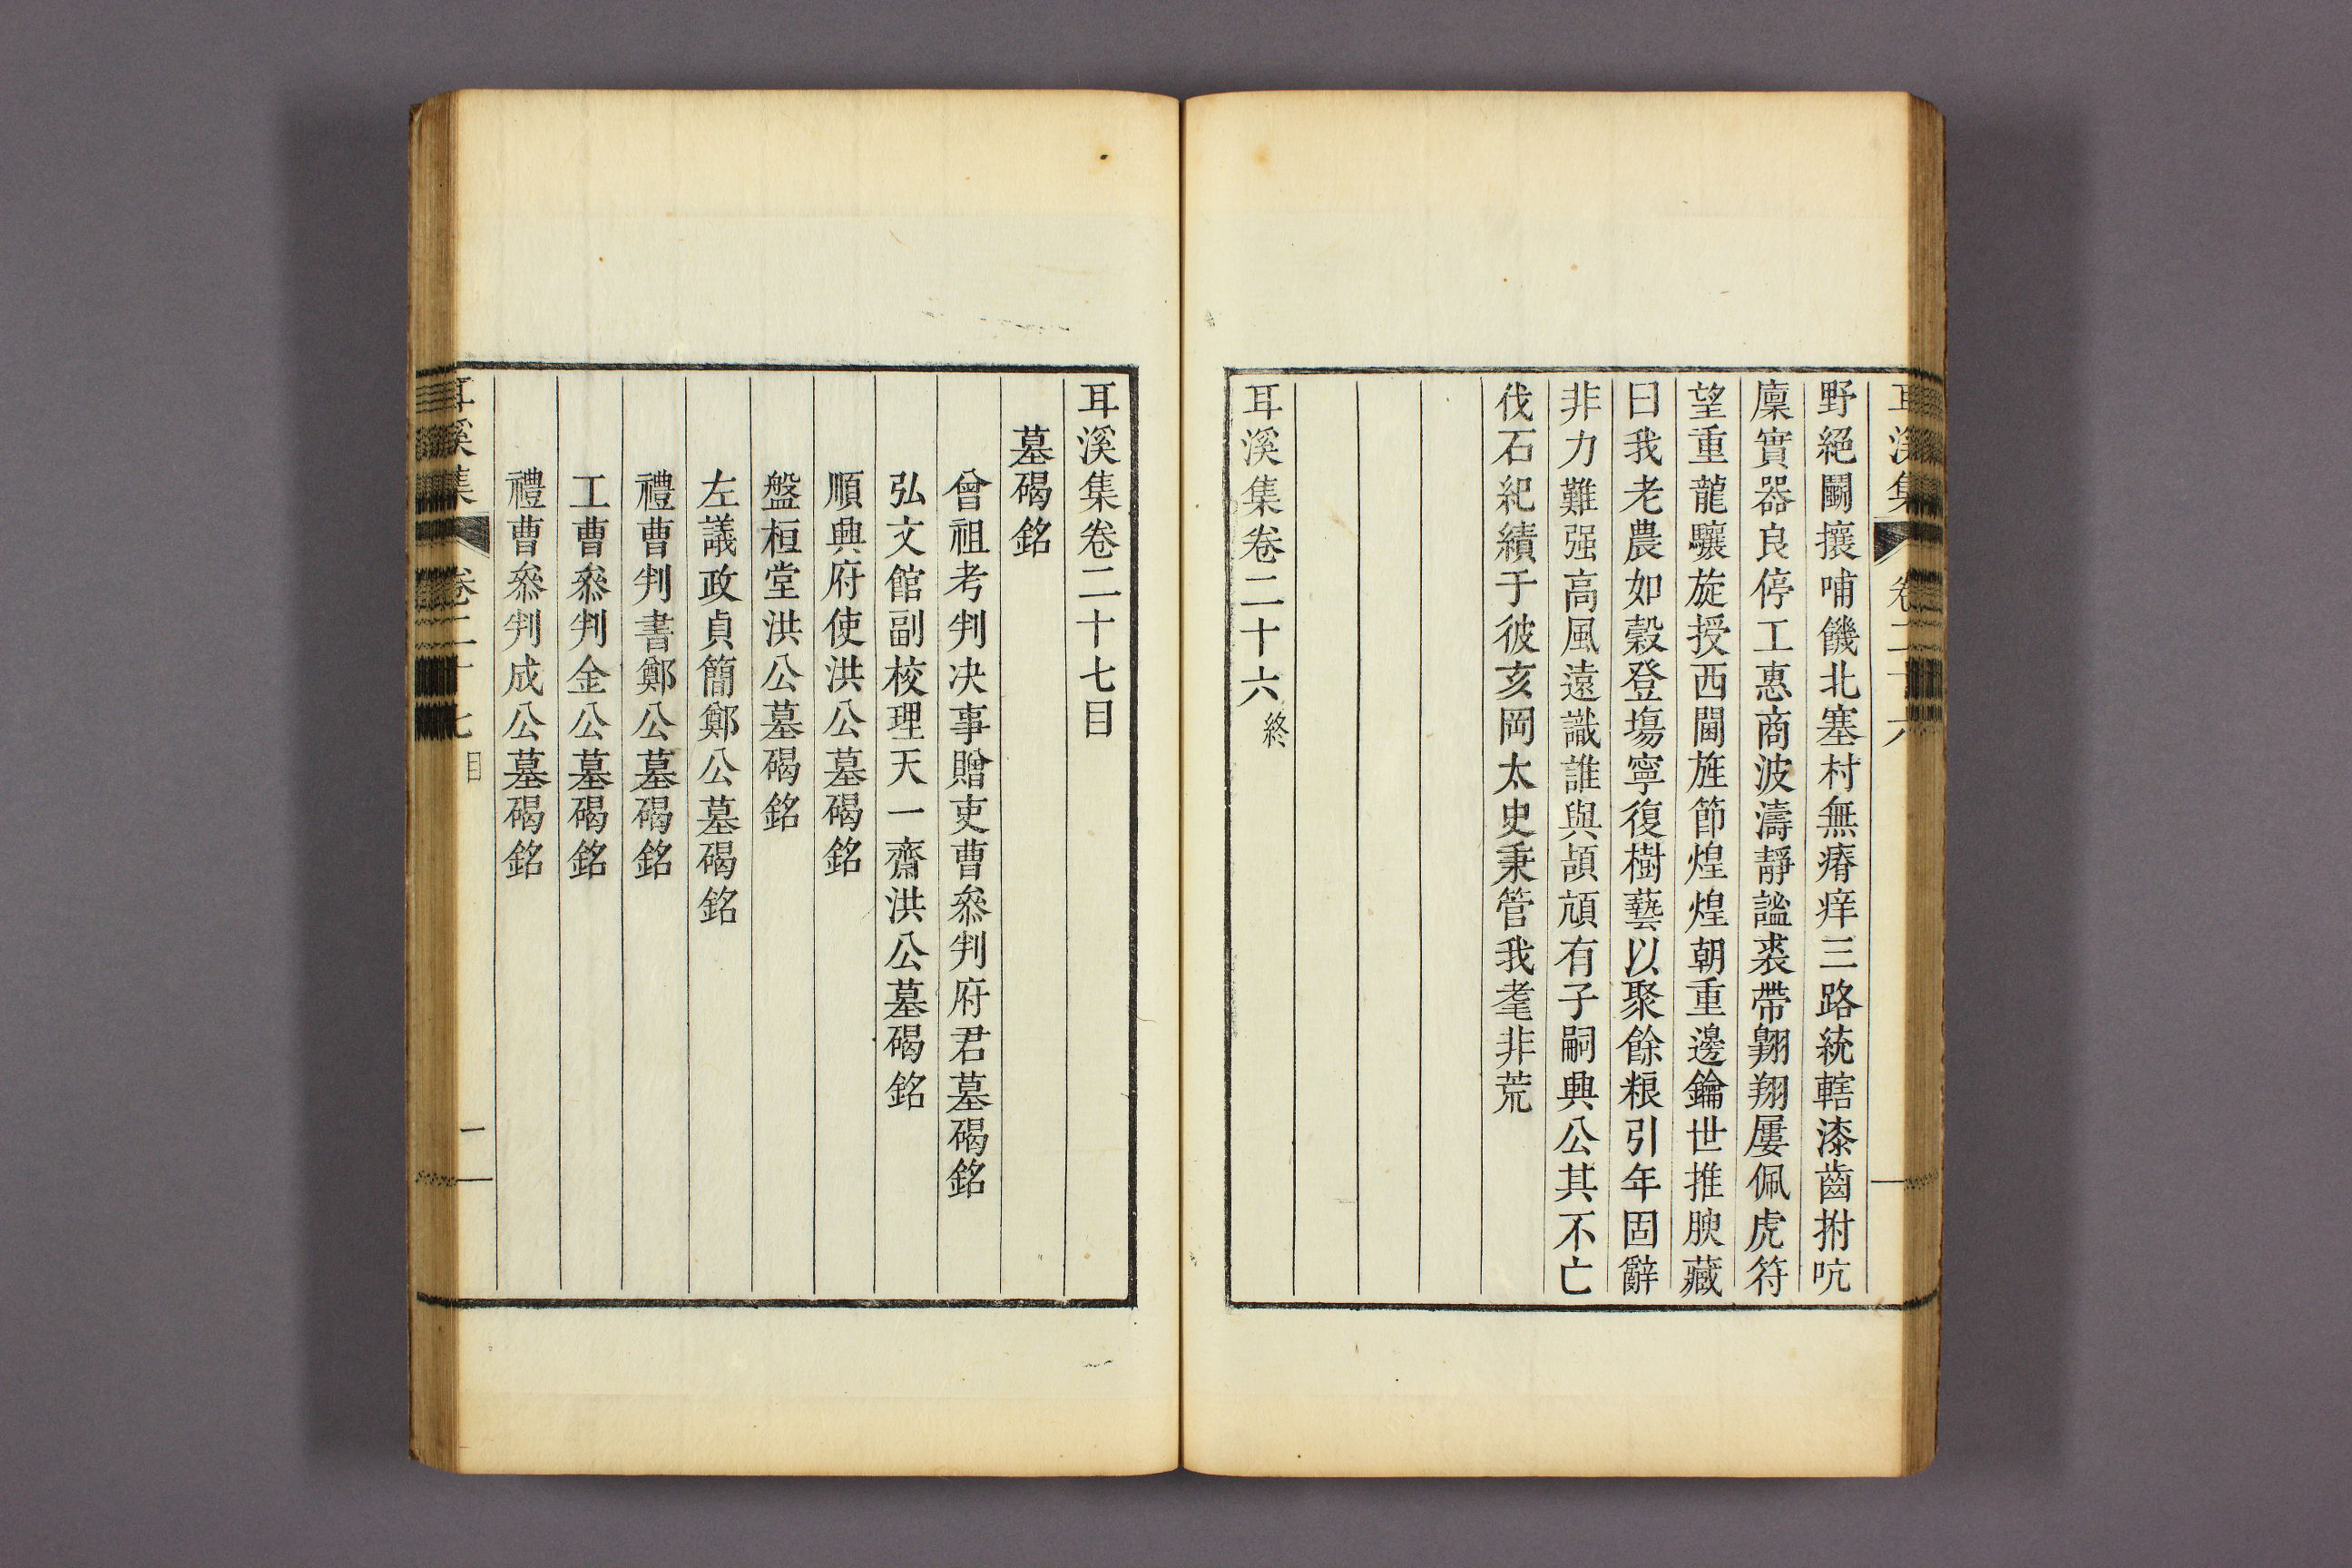 野絕鬭攘哺饑北塞村無瘠痒三路統轄漆齒拊吭
廩實器良停工惠商波濤靜謐裘帶翺翔屢佩虎符
望重龍驤旋授西閫旌節煌煌朝重邊鑰世推腴藏
曰我老農如穀登場寧復樹藝以聚餘粮引年固辭
非力難强高風遠識誰與頡頏有子嗣興公其不亡
伐石紀績于彼亥岡太史秉管我耄非荒
耳溪集卷二十六終
耳溪集卷二十七目
墓碣銘
曾祖考判決事贈吏曹叅判府君墓碣銘
弘文館副校理天一齋洪公墓碣銘
順興府使洪公墓碣銘
盤桓堂洪公墓碣銘
左議政貞簡鄭公墓碣銘
禮曹判書鄭公墓碣銘
工曹叅判金公墓碣銘
禮曹叅判成公墓碣銘
耳溪集 卷二十七 目 一